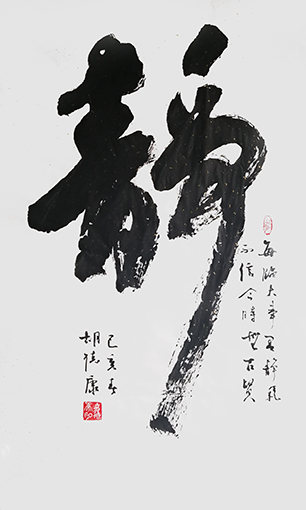 静
每临大事有静气
不信今时无古贤
己亥春
胡德康